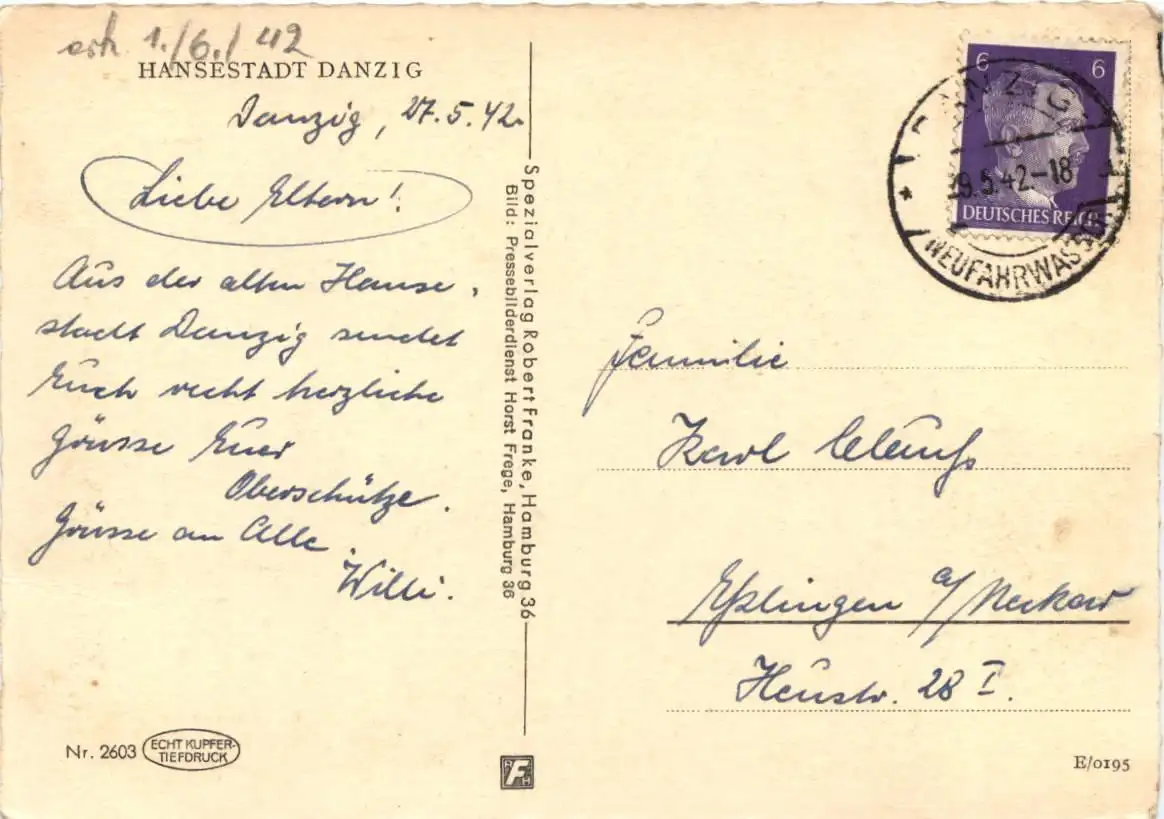 erh. 1./6./42
HANSESTADT DANZIG
Danzig, 27.5.42.
Liebe Eltern!
Aus der alten Hanse,
stadt Danzig sendet
Euch recht herzliche
Grüsse Euer
Oberschütze.
Grüsse an Alle.
Willi.
Nr. 2603
ECHT KUPFER-
TIEFDRUCK
Spezialverlag Robert Franke, Hamburg 36
Bild: Pressebilderdienst Horst Frege, Hamburg 36
RFH
6 6
DEUTSCHES REICH
DANZIG
29.5.42.-18
NEUFAHRWASSER
Familie
Karl
Eßlingen a/Neckar
Heustr. 28 I.
E/0195